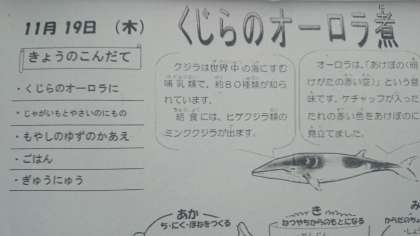 11月19日（木）
くじらのオーロラ煮
に
きょうのこんだて
・くじらのオーロラに
・じゃがいもとやさいのにもの
・もやしのゆずのかあえ
・ごはん
・ぎゅうにゅう
クジラは世界中の海にすむ
哺乳類で、約８０種類が知ら
れています。
給食には、ヒゲクジラ類の
ミンククジラが出ます。
オーロラは、「あけぼの(明
けがたの赤い空)」という意
味です。ケチャップが入った
たれの赤い色をあけぼのに
見立てました。
あか
ち・にく・ほねをつくる
き
ねつやちからのもとになる
み
からだのちょ